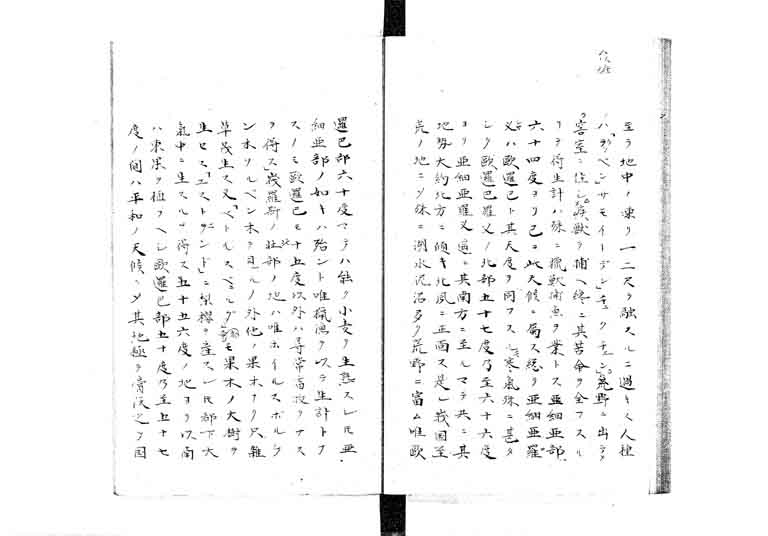 至ラ地中ノ凍リ一二尺ヲ融スルニ過キス人種
ハ「ラツペン」サモイーデン」チユクチエン荒野ニ出テ
窖室ニ住シ獣ヲ捕ヘ終ニ其苦命ヲ全フスル
ヲ得生計ハ殊ニ猟獣術魚ヲ業トス亜細亜部
六十四度ヨリ已ニ此天候ニ属ス総テ亜細亜羅
叉ハ歐羅巴ト其天度ヲ同フスル寒氣殊ニ甚タ
シク歐羅巴羅叉ノ北部五十七度乃至六十六度
ヨリ亜細亜羅叉ニ其南方ニ至ルマテ共ニ其
地勢大約北方ニ傾キ北風ニ正面ス是レ我国至
荒ノ地ニシテ殊ニ湖水泥沼多ク荒野ニ富ム唯歐
邏巴部六十度マテハ能ク小麦ヲ生熟スレ𪜈亜
細亜部ノ如キハ殆ント唯猟漁ヲ以テ生計トフ
スノミ歐邏巴モ十五度以外ハ尋常畜牧ヲナス
ヲ得ス峩羅斯ノ北部ノ地ハ唯ホイルスボルラ
ン木ソルベン木ヲ目ルノ外他ノ果木ナク只雑
草茂生ス又「ペトルスビユルグ」モ果木ノ大樹ヲ
生セス「エストランド」ニ梨樹ヲ産スレ𪜈部下大
氣中ニ生スル得ス五十五六度ノ地ヨリ以南
ハ東果ヲ極ラヘシ歐邏巴部五十度乃至五十七
度ノ間ハ平和ノ天候ニシテ其地極テ膏沃之ヲ因